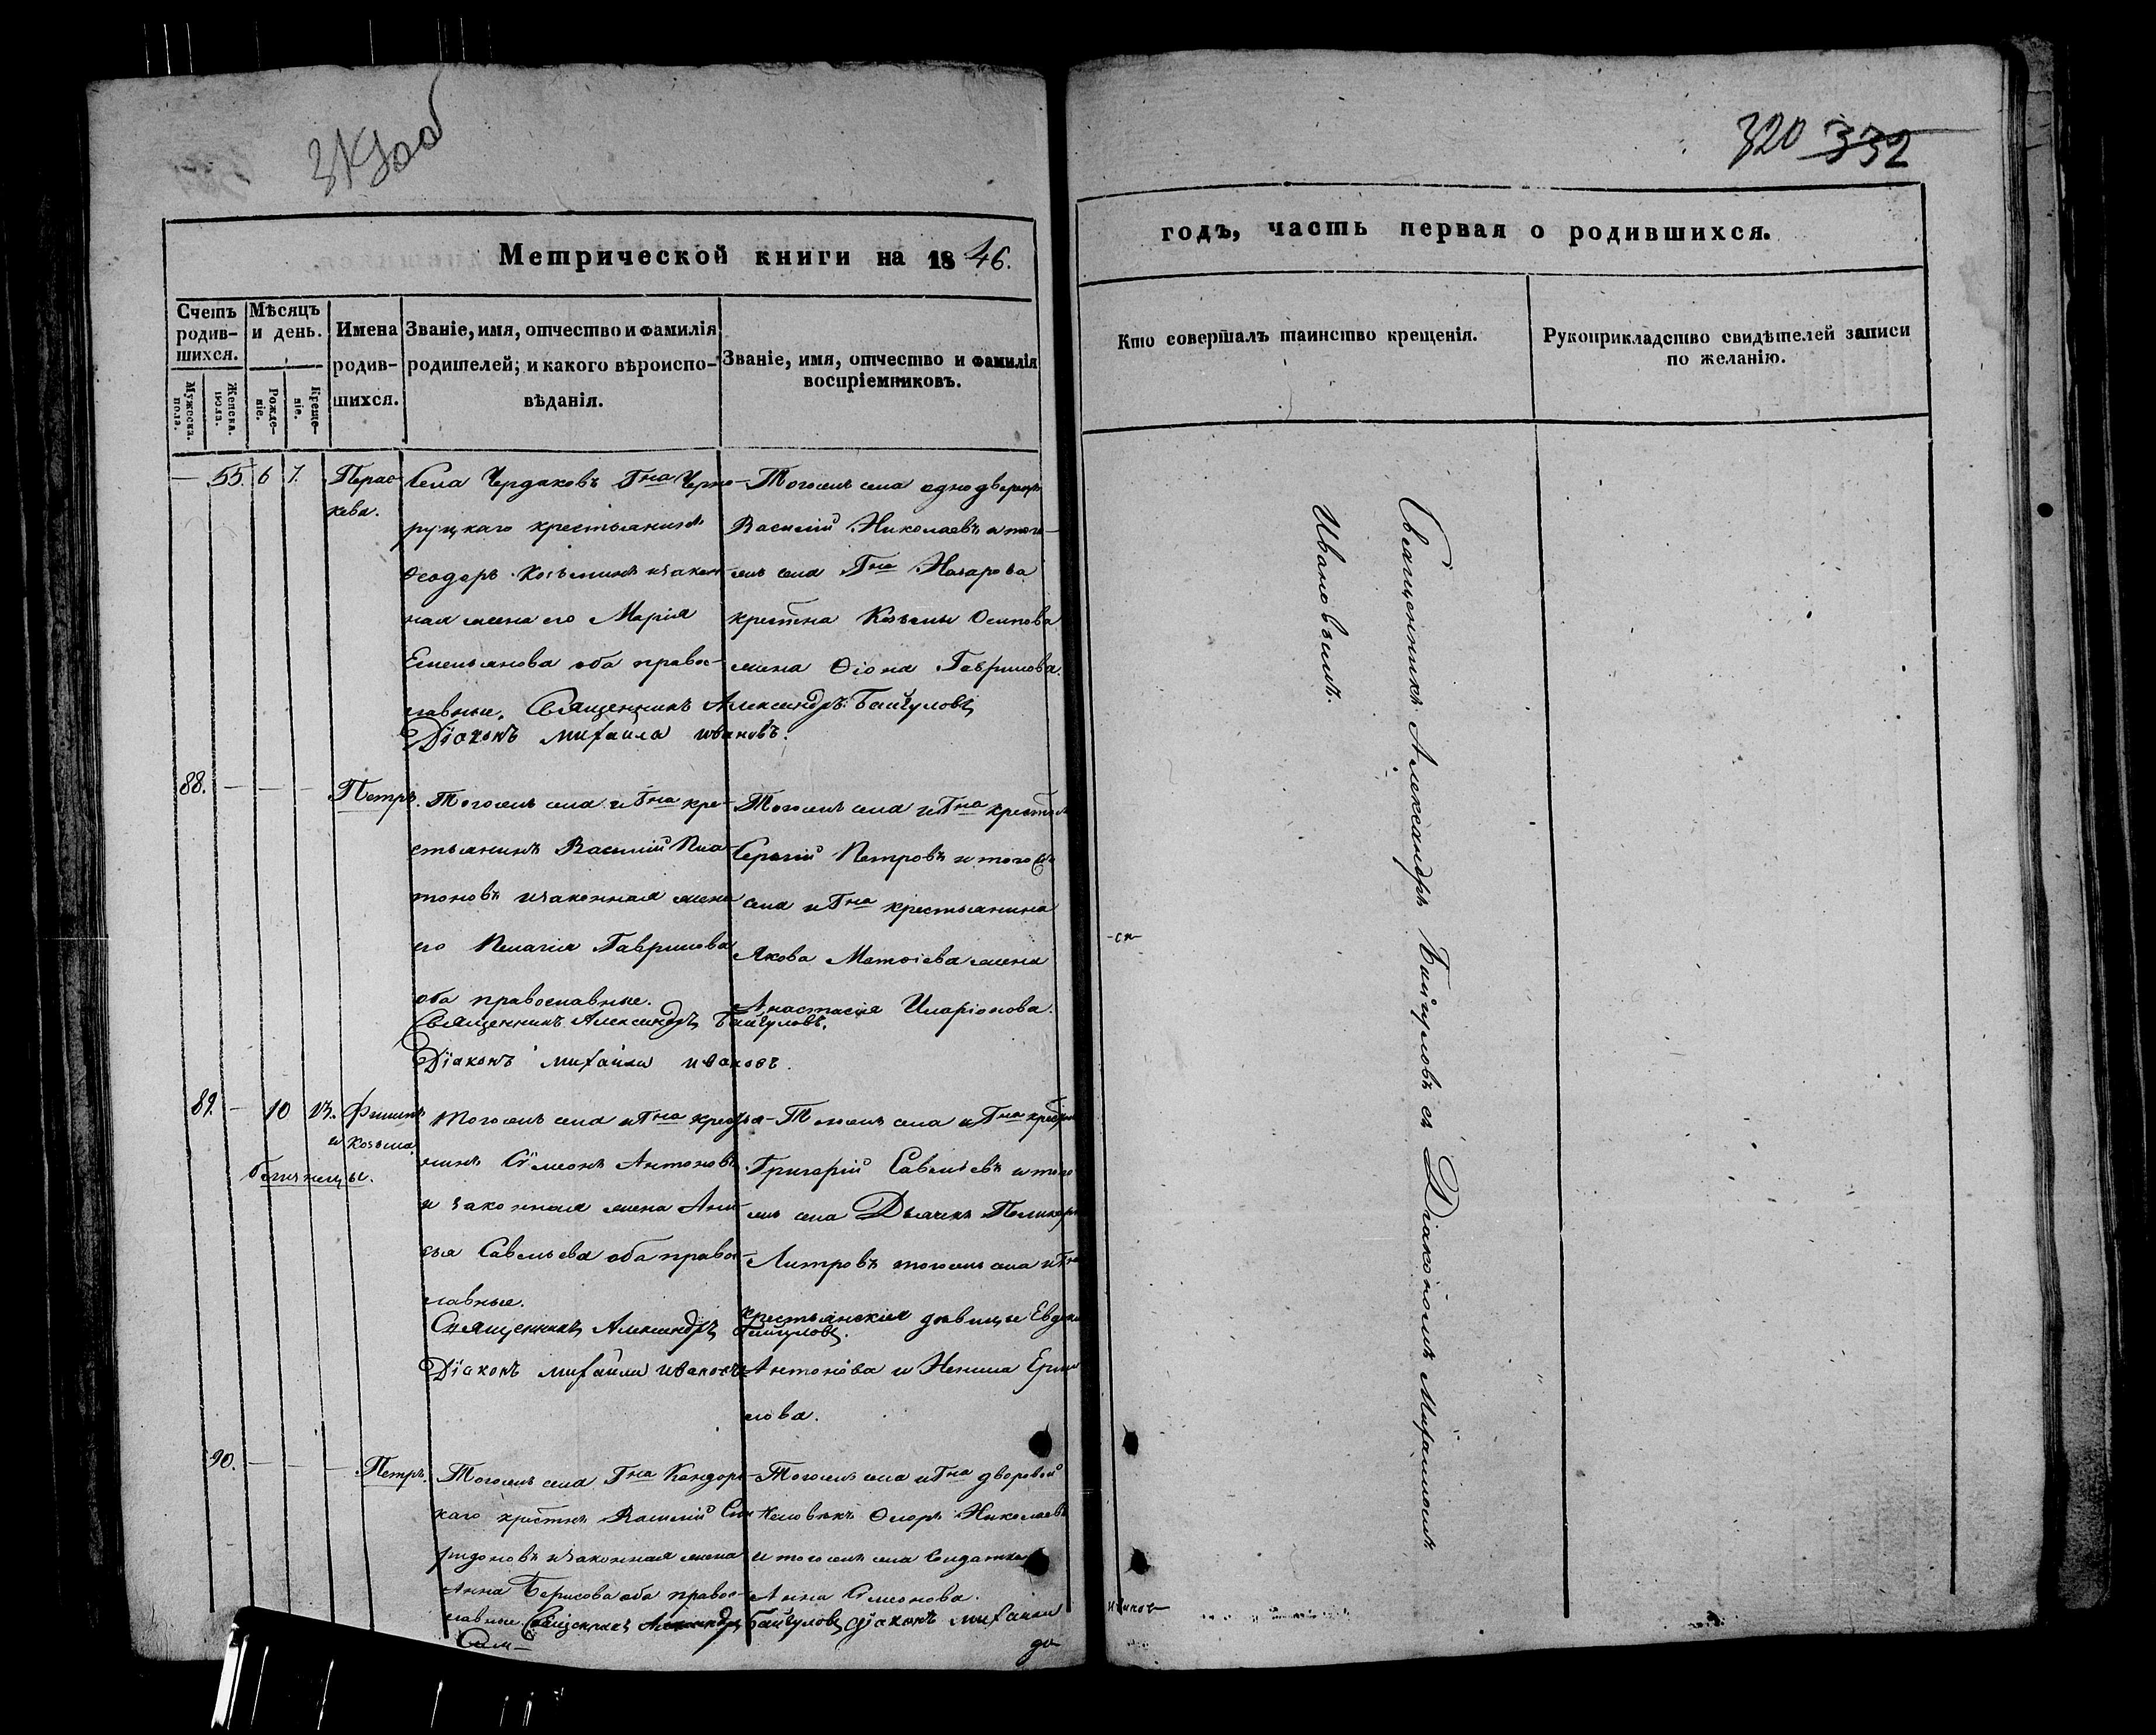 320 332
Метрической книги на 1846.
годъ, часть первая о родившихся.
Счетъ родив-шихся.
Мужеска. пола.
Женска. пола.
Мѣсяцъ и день.
Рожде-ніе.
Креще-ніе.
Имена родив-шихся.
Званіе, имя, отчество и фамилія
родителей; и какого вѣроиспо-
вѣданія.
Званіе, имя, отчество и фамилія
воспріемниковъ.
Кто совершалъ таинство крещенія.
Рукоприкладство свидѣтелей записи
по желанію.
— 55. 6 7.
Перас-
кева.
Села Чердаковъ Гна Черно-
руцкаго крестьянинъ
Ѳеодоръ Козьминъ изакон-
ная жена его Марія
Емельянова оба правос-
лавные. Священникъ Александръ Байгуловъ
Діаконъ михаила ивановъ.
Тогожъ села однодворецъ
Василій Николаевъ итого-
жъ села Гна Назарова
крестьна Козьмы Осипова
жена Ѳіона Гаврилова.
88. — — —
Петръ.
Тогожъ села иГна кре-
стьянинъ Василій Пла-
тоновъ изаконная жена
его Пелагія Гаврилова
оба православные.
Священникъ Александръ Байгуловъ.
Діаконъ михаила ивановъ.
Тогожъ села иГна крестьнъ
Сергій Петровъ итогожъ
села иГна крестьянина
Якова Матѳіева жена
Анастасія Иларіонова.
89. — 10 13.
Филипъ
и Козьма.
близнецы.
Тогожъ села иГна крестья-
нинъ Сѵмеонъ Антоновъ
и законная жена Ани-
сья Савельева оба правос-
лавные.
Священникъ Александръ Байгуловъ.
Діаконъ михаила ивановъ
Тогожъ села иГна
Григорій Савельевъ итого
жъ села Дьячекъ
тогожъ села иГна
крестьянскія дѣвицы
Антонова и
лова.
90. — — —
Петръ.
Тогожъ села Гна
каго крестнъ Василій Спи-
ридоновъ изаконная жена
Анна Борисова оба правос-
лавные. Священникъ Александръ Байгуловъ діаконъ михаила
Тогожъ села иГна дворовой
человѣкъ Николаевъ
и тогожъ села Солдатка
Анна Сѵмеонова.
Священникъ Александръ Байгуловъ съ Діакономъ Михаиломъ
Ивановымъ.